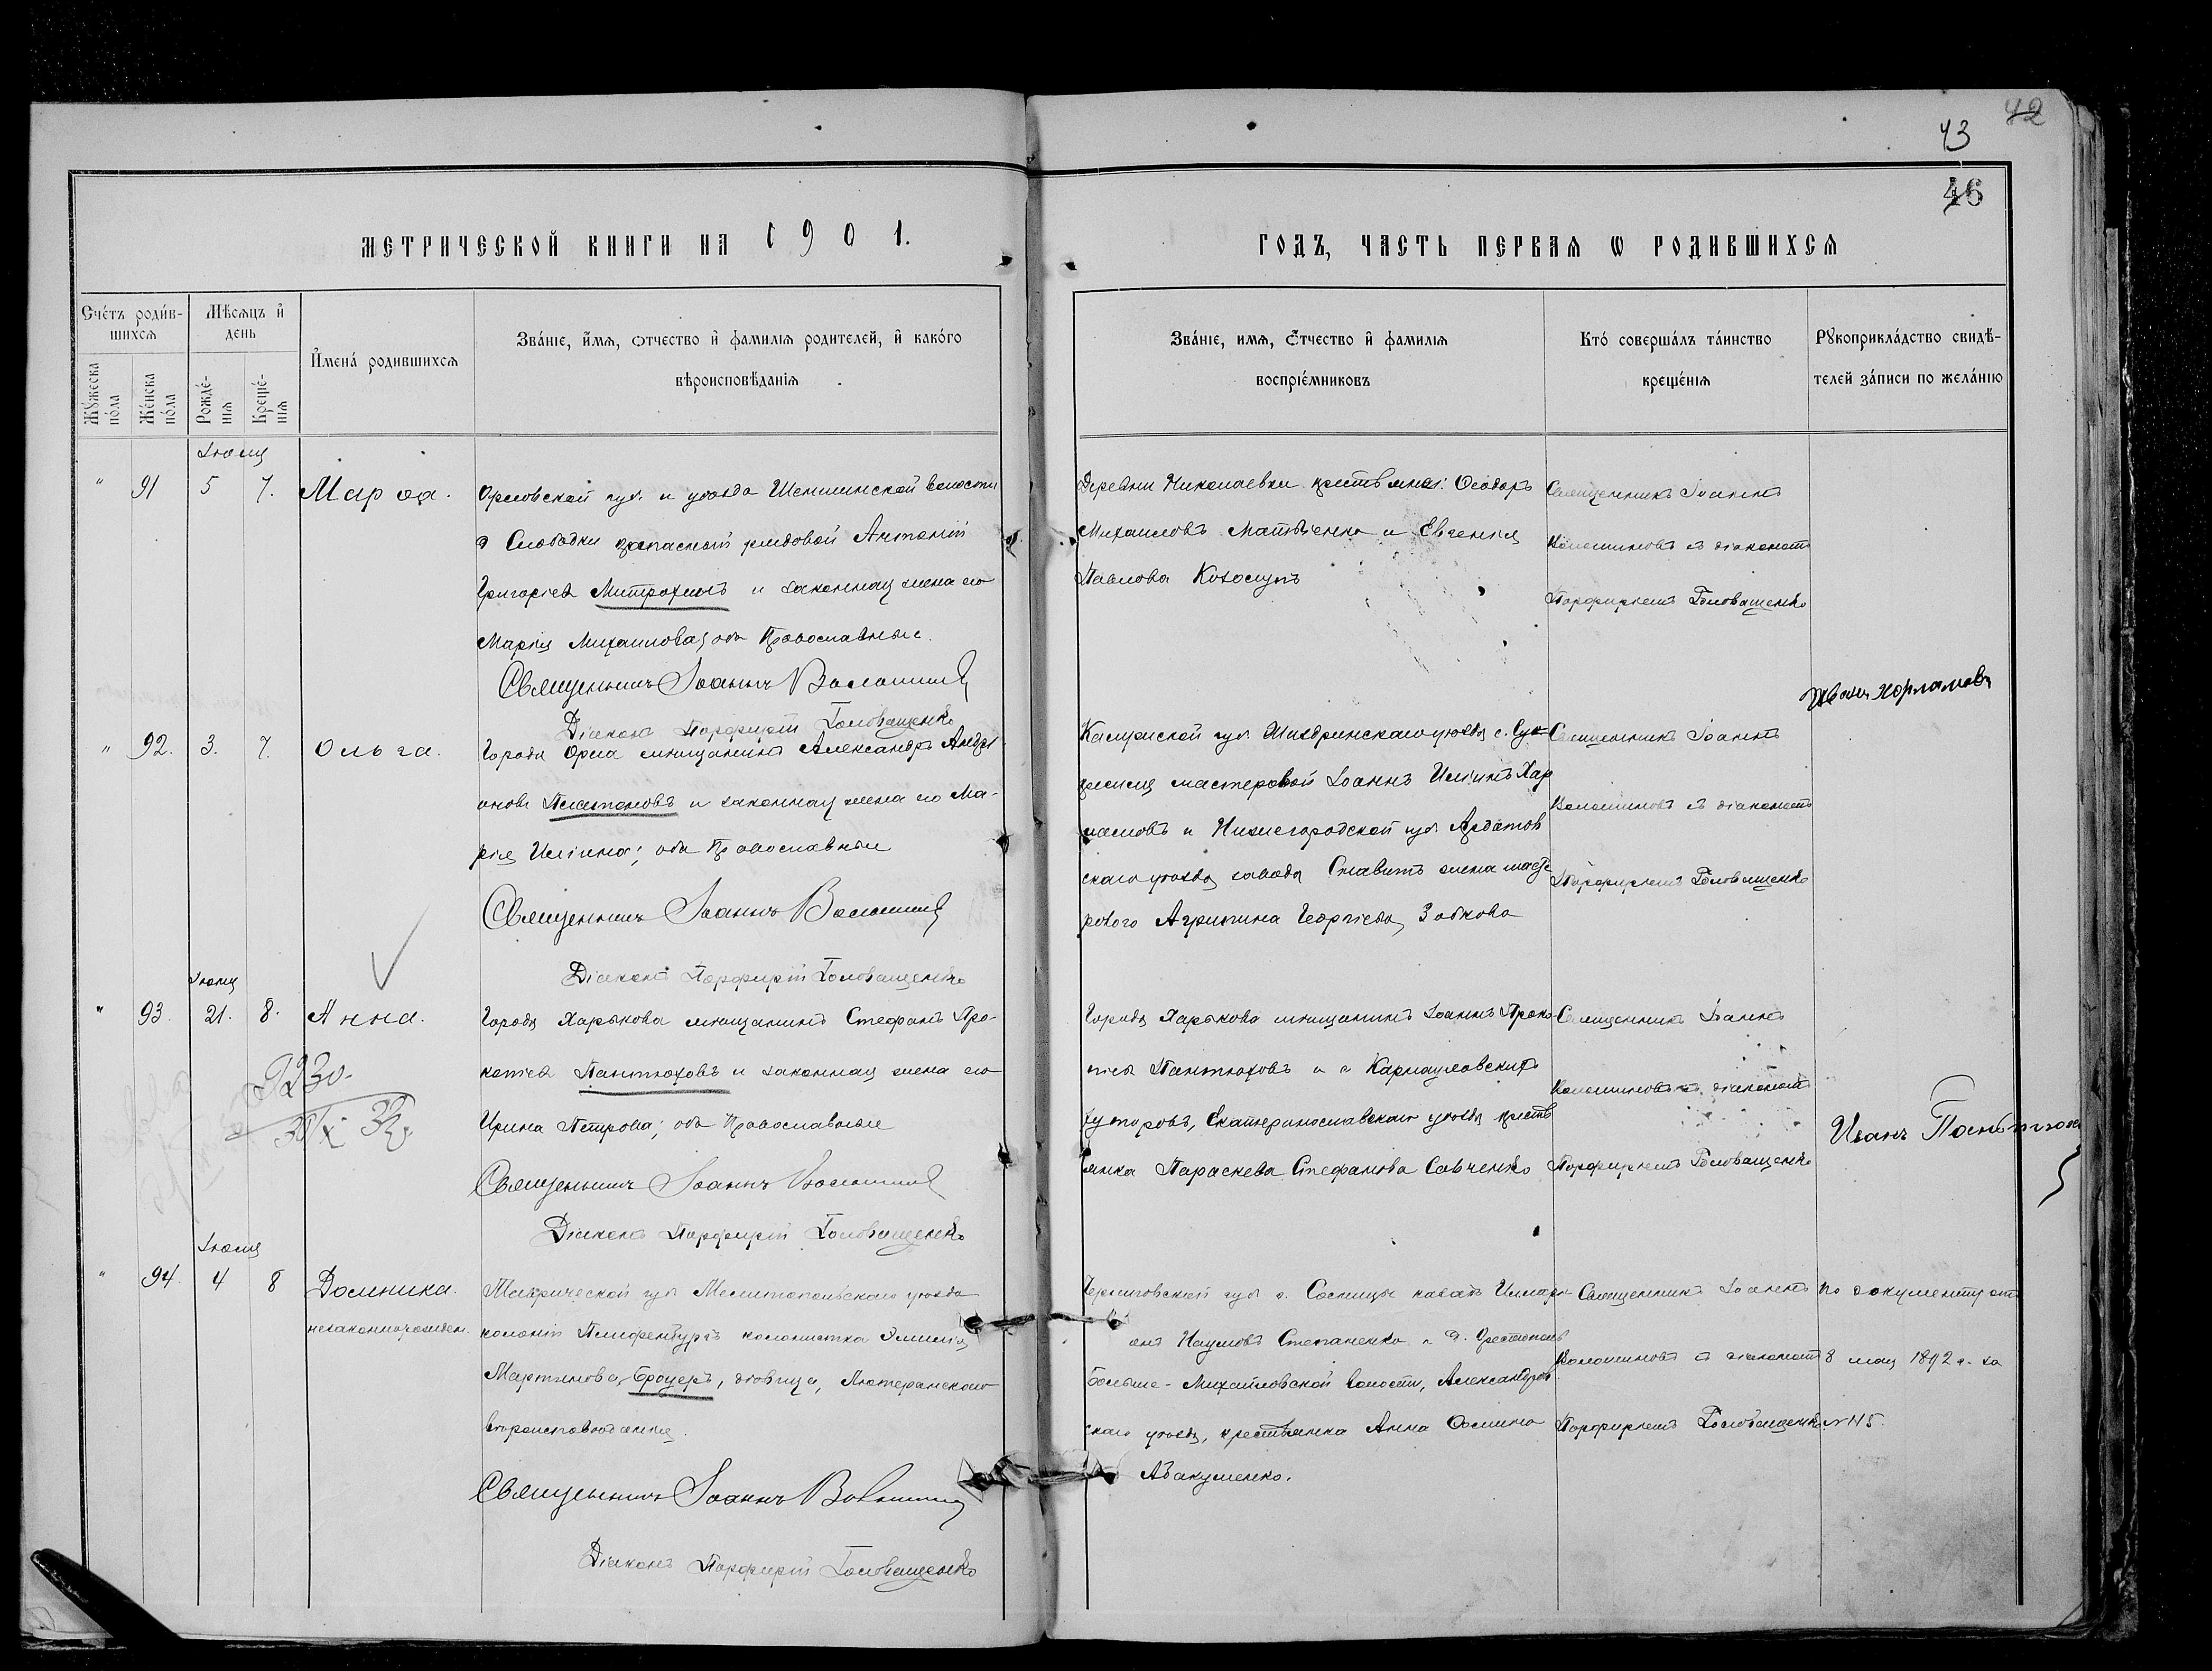 42
43
46
МЕТРИЧЕСКОЙ КНИГИ НА 1901.
ГОДЪ, ЧАСТЬ ПЕРВАЯ Ѡ РОДИВШИХСЯ
Счетъ родив-
шихся
Мужеска пола
Женска пола
Мѣсяцъ и
день
Рожде-
нія
Креще-
нія
Имена родившихся
Званіе, имя, отчество и фамилія родителей, и какого
вѣроисповѣданія
Званіе, имя, отчество и фамилія
воспріемниковъ
Кто совершалъ таинство
крещенія
Рукоприкладство свидѣ-
телей записи по желанію
" 91 5 7. Марѳа.
Орловской губ. и уѣзда волости
Слободки запасный рядовой Антоній
Григоріевъ Митрохинъ и законная жена его
Марія Михаилова, оба православные.
Священникъ Іоаннъ Волошинъ
Діаконъ Порфирій Головащенко
Деревни Николаевки крестьяне: Ѳеодоръ
Михаиловъ Матвіенко и Евгенія
Павлова
Священникъ Іоаннъ
Волошиновъ съ діакономъ
Порфиріемъ Головащенко
" 92. 3. 7. Ольга.
Города Орла мѣщанинъ Александръ Андрі-
ановъ Платоновъ и законная жена его Ма-
рія Иліина; оба православные
Священникъ Іоаннъ Волошинъ
Діаконъ Порфирій Головащенко
Калужской губ. уѣзда с.
мастеровой Іоаннъ Иліинъ Хар
ламовъ и Нижегородской губ. Ардатов
скаго уѣзда завода жена масте
рового Агрипина Георгіева Зобкова
Священникъ Іоаннъ
Волошиновъ съ діакономъ
Порфиріемъ Головащенко
Иванъ Харламовъ
" 93. 21. 8. Анна.
Города Харькова мѣщанинъ Стефанъ Про-
копіевъ Пантюховъ и законная жена его
Ирина Петрова; оба православные
Священникъ Іоаннъ Волошинъ
Діаконъ Порфирій Головащенко
Города Харькова мѣщанинъ Іоаннъ Проко-
піевъ Пантюховъ и
хуторовъ, Екатеринославскаго уѣзда кресть
янка Параскева Стефанова Савченко
Священникъ Іоаннъ
Волошиновъ съ діакономъ
Порфиріемъ Головащенко
Иванъ
Іюля
" 94. 4 8 Домника.
незаконнорожден.
Таврической губ. Мелитопольскаго уѣзда
колоніи колонистка Эмилія
Мартинова Броуеръ, дѣвица, Лютеранскаго
вѣроисповѣданія.
Священникъ Іоаннъ Волошинъ
Діаконъ Порфирій Головащенко
Черниговской губ. г. Сосницы казакъ Иларі-
онъ Наумовъ Степаненко и
Больше-Михайловской волости, Александров
скаго уѣзда, крестьянка Анна
Абакуменко.
Священникъ Іоаннъ
Волошиновъ съ діакономъ
Порфиріемъ Головащенко
По документу отъ
8 мая 1892 г. за
№ 115.